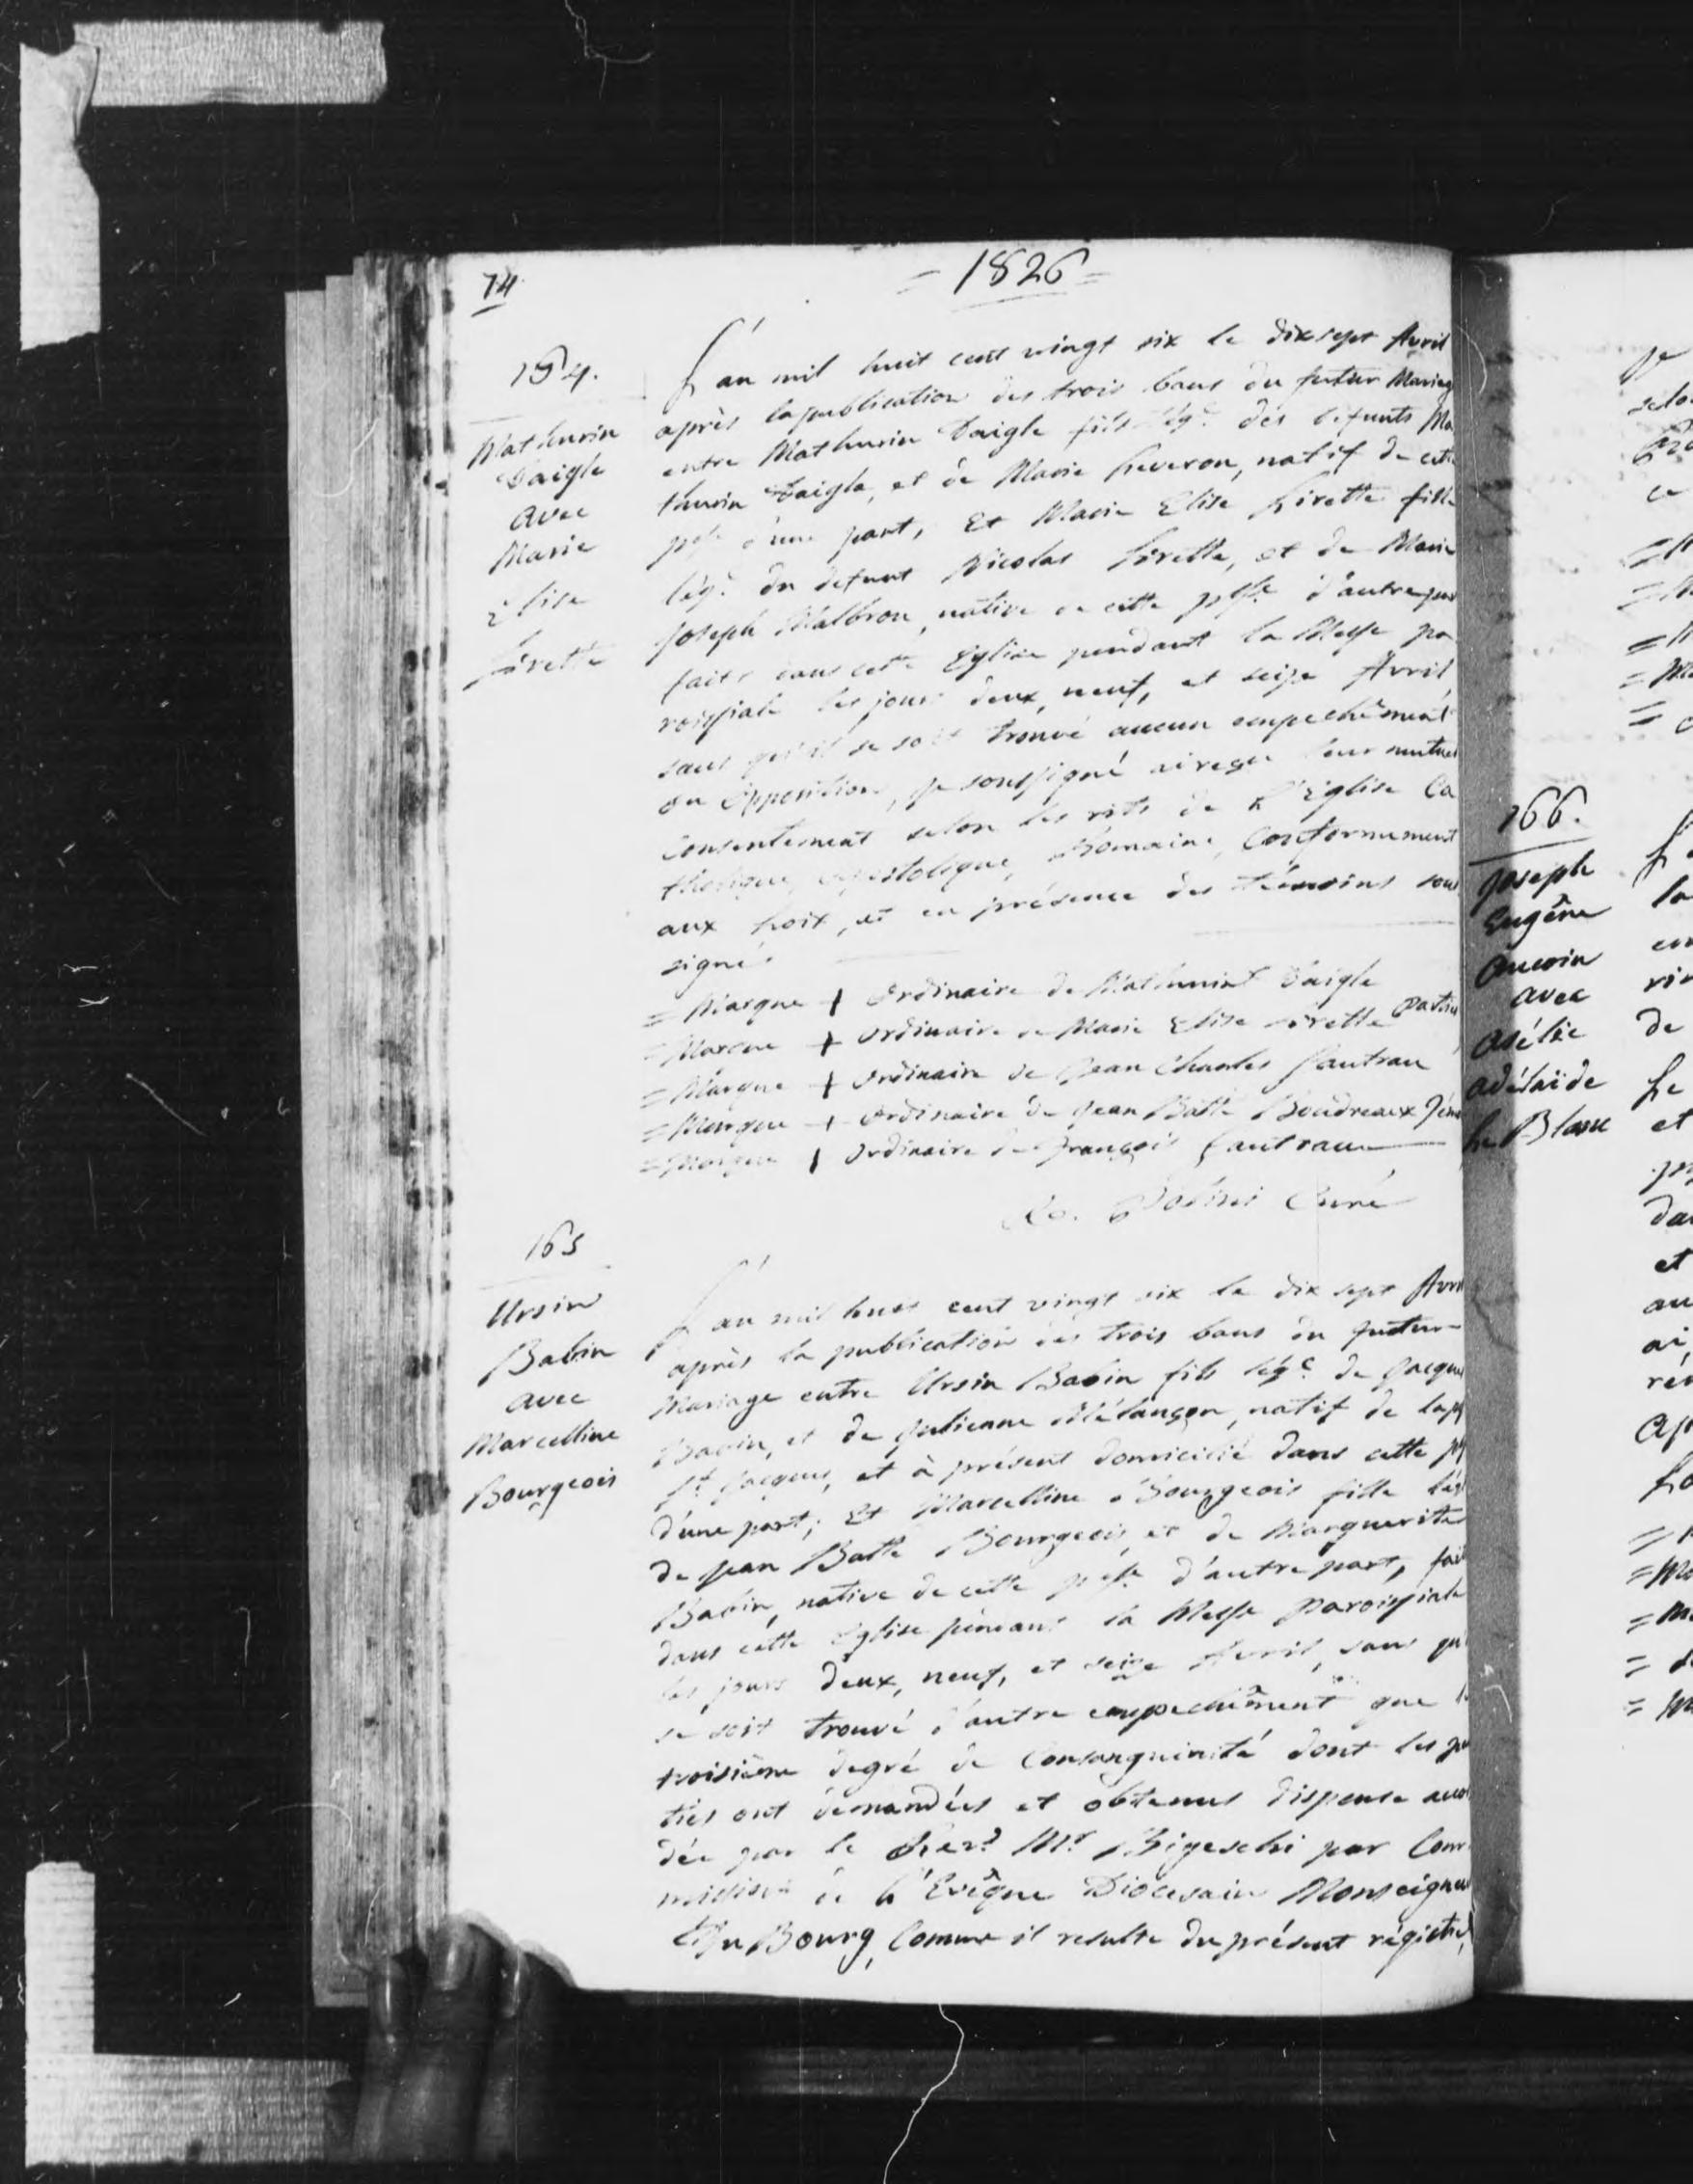 74
= 1826 =
164.
Mathurin
Daigle
avec
Marie
Elise
Lirette
L'an mil huit cent vingt six le dix sept Avril
après la publication des trois bans du futur Mariag
entre Mathurin Daigle fils lég.e des defunts Ma
thurin Daigle, et de Marie Leveron, natif de cette
psse d'une part, Et Marie Elise Lirette fille
lég.e du defunt Nicolas Lirette, et de Marie
Joseph Malbrou, native de cette psse d'autre par
faite dans cette Eglise pendant la Messe pa
roissiale les jours deux, neuf, et seize Avril
sans qu'il se soit trouvé aucun empechêment
ou Opposition, je soussigné ai reçu leur mutuel
Consentement selon les rits de L'Eglise Ca
tholique, apostolique, Romaine, Conformement
aux Loix, et en présence des témoins sous
signé
= Marque + Ordinaire de Mathurin Daigle
= Marque + Ordinaire de Marie Elise Lirette Parties
= Marque + Ordinaire de Jean Charles Gautrau
= Marque + Ordinaire de Jean Batte Boudreaux
= Marque + Ordinaire de François Gautraux
Curé
165
Ursin
Babin
avec
Marcelline
Bourgeois
L'an mil huit cent vingt six le dix sept Avril
après la publication des trois bans du futur
Mariage entre Ursin Babin fils lég.e de Jacques
Babin, et de Julienne Mélançon, natif de la p
St Jacques, et à présent domicilié dans cette ps
d'une part; Et Marcelline Bourgeois fille lég
de Jean Batte Bourgeois, et de Marguerite
Babin, native de cette psse d'autre part, fait
dans cette Eglise pendant la Messe paroissiale
les jours deux, neuf, et seize Avril, sans qu'
se soit trouvé d'autre empechêment que l
troisième degré de Consanguinité dont les pa
ties ont demandées et obtenus dispense accor
dée par le Rév.d Mr Bigeschi par Com
mission de L'Evêque Diocesain Monseigneu
Du Bourg, Comme il resulte du présent régistre,
166.
Joseph
Eugêne
Aucoin
avec
Asélie
adélaïde
Le Blanc